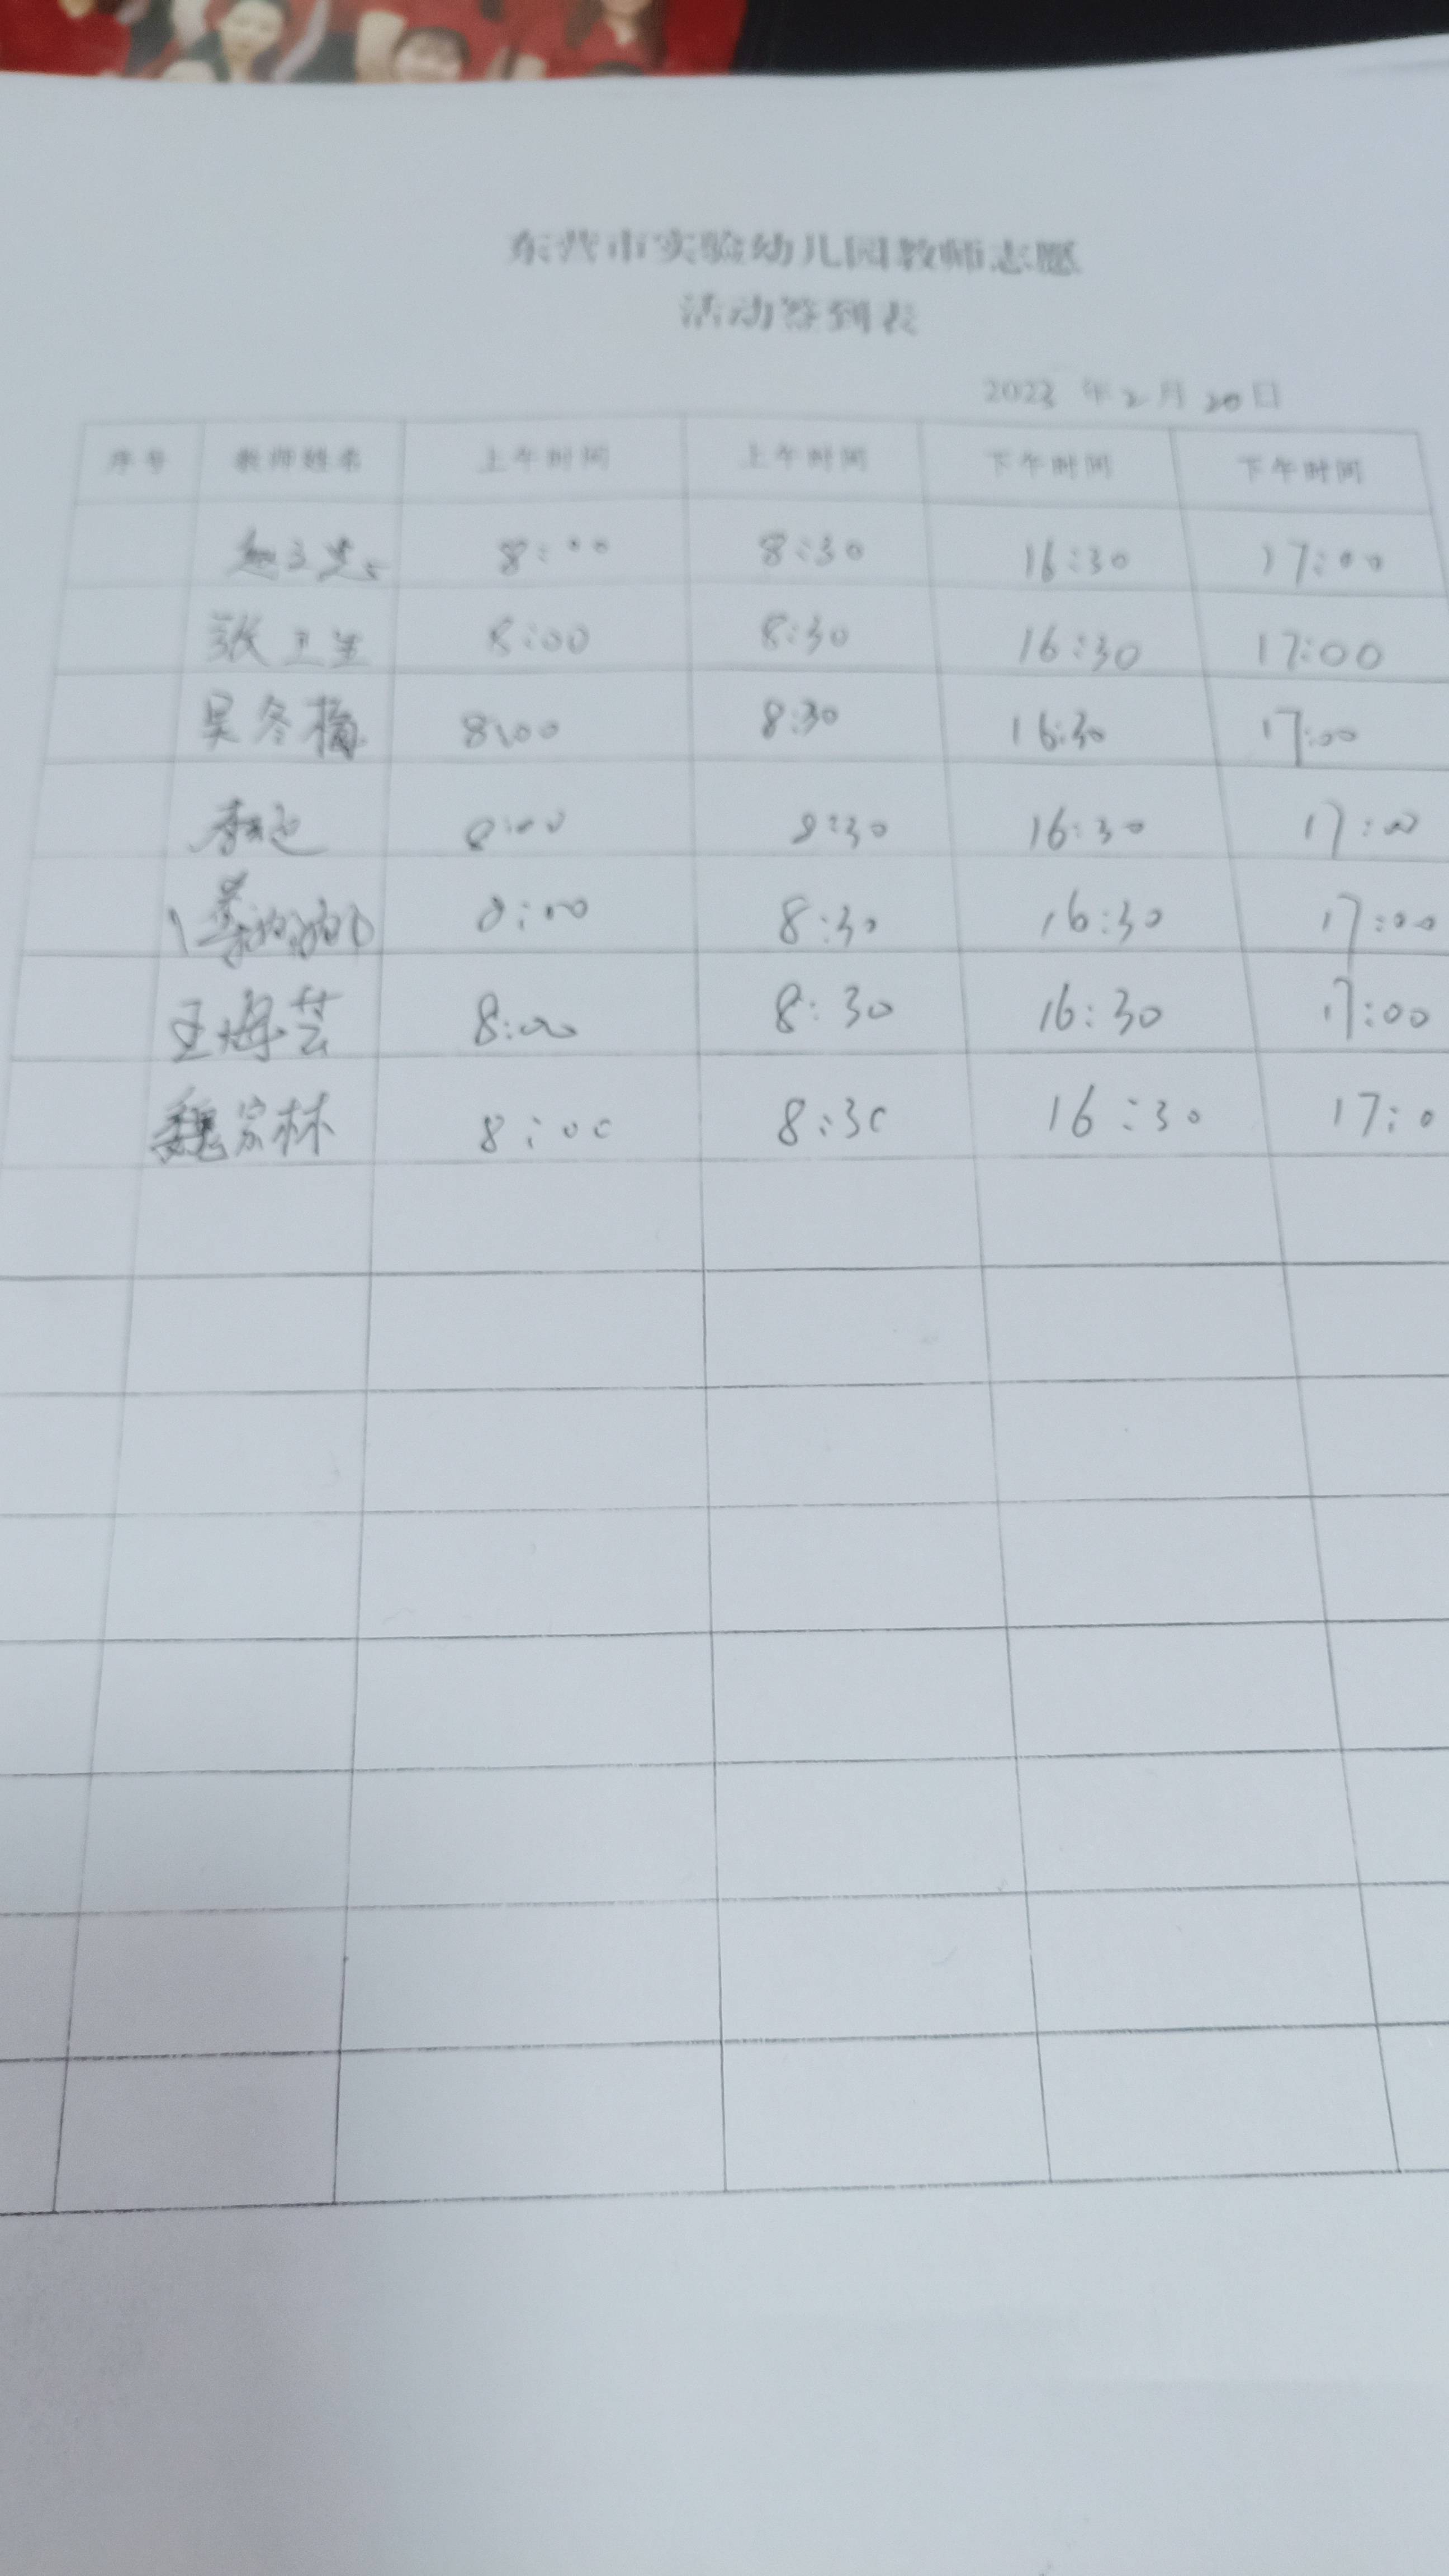 东营市实验幼儿园教师志愿
活动签到表
2023 年 2 月 20 日
序号 教师姓名 上午时间 上午时间 下午时间 下午时间
8:00 8:30 16:30 17:00
张卫生 8:00 8:30 16:30 17:00
吴冬梅 8:00 8:30 16:30 17:00
8:00 8:30 16:30 17:00
8:00 8:30 16:30 17:00
王海芸 8:00 8:30 16:30 17:00
魏宗林 8:00 8:30 16:30 17:0